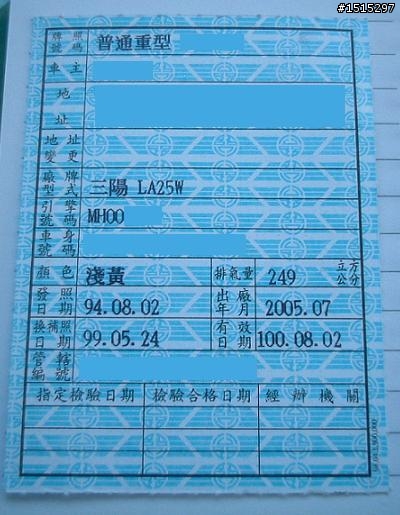 #1515297
牌照號碼 普通重型
車主
地址
地址變更
廠牌型式 三陽 LA25W
引擎號碼 MH00
車身號碼
顏色 淺黃 排氣量 249 立方公分
發照日期 94.08.02 出廠年月 2005.07
換補照日期 99.05.24 有效日期 100.08.02
管轄編號
指定檢驗日期 檢驗合格日期 經辦機關